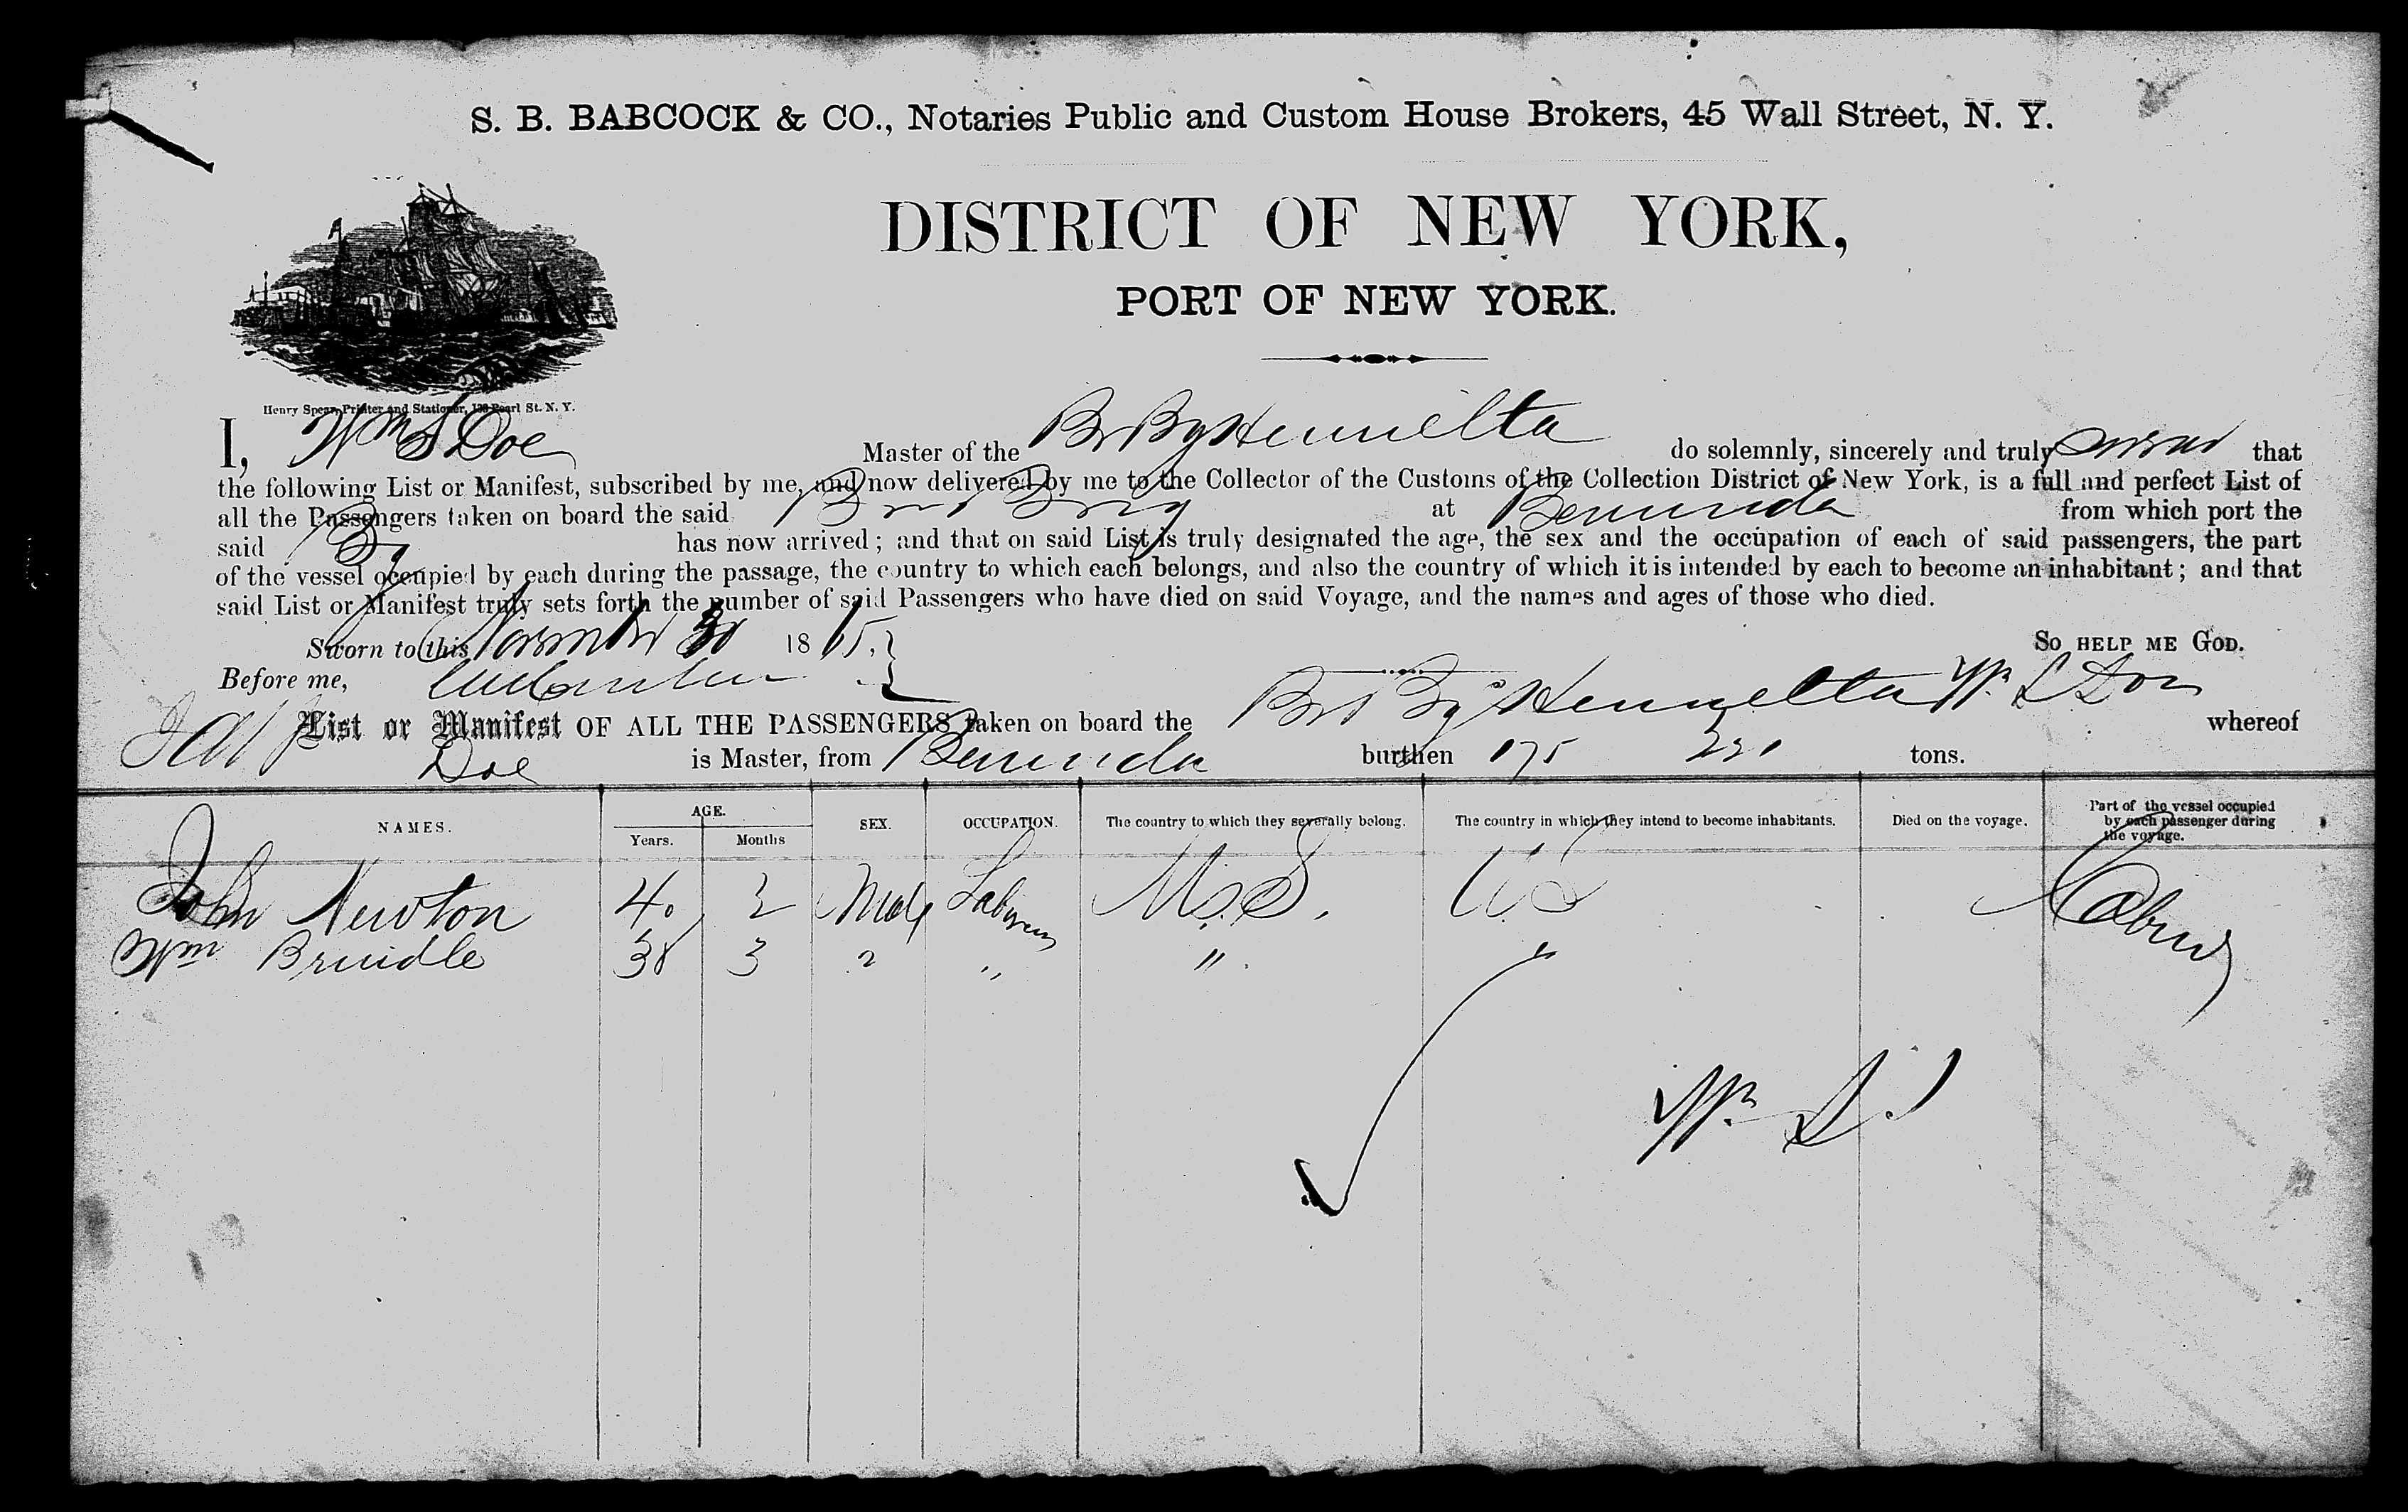 S. B. BABCOCK & CO., Notaries Public and Custom House Brokers, 45 Wall Street, N. Y.
DISTRICT OF NEW YORK,
PORT OF NEW YORK.
Henry Spear, Printer and Stationer, 133 Pearl St. N. Y.
I, Wm S Doe Master of the Br Bg Henrietta do solemnly, sincerely and truly swear that
the following List or Manifest, subscribed by me, and now delivered by me to the Collector of the Customs of the Collection District of New York, is a full and perfect List of
all the Passengers taken on board the said Br Brig at Bermuda from which port the
said Bg has now arrived; and that on said List is truly designated the age, the sex and the occupation of each of said passengers, the part
of the vessel occupied by each during the passage, the country to which each belongs, and also the country of which it is intended by each to become an inhabitant; and that
said List or Manifest truly sets forth the number of said Passengers who have died on said Voyage, and the names and ages of those who died.
Sworn to this November 30 1865. So help me God.
Before me, Wm S Doe
List or Manifest OF ALL THE PASSENGERS taken on board the Br Bg Henrietta whereof
Doe is Master, from Bermuda burthen 175 tons.
NAMES. AGE. Years. Months SEX. OCCUPATION. The country to which they severally belong. The country in which they intend to become inhabitants. Died on the voyage. Part of the vessel occupied by each passenger during the voyage.
John Newton 40 2 Male Laborer U.S. U S Cabin
Wm Brindle 38 3 " " " "
Wm